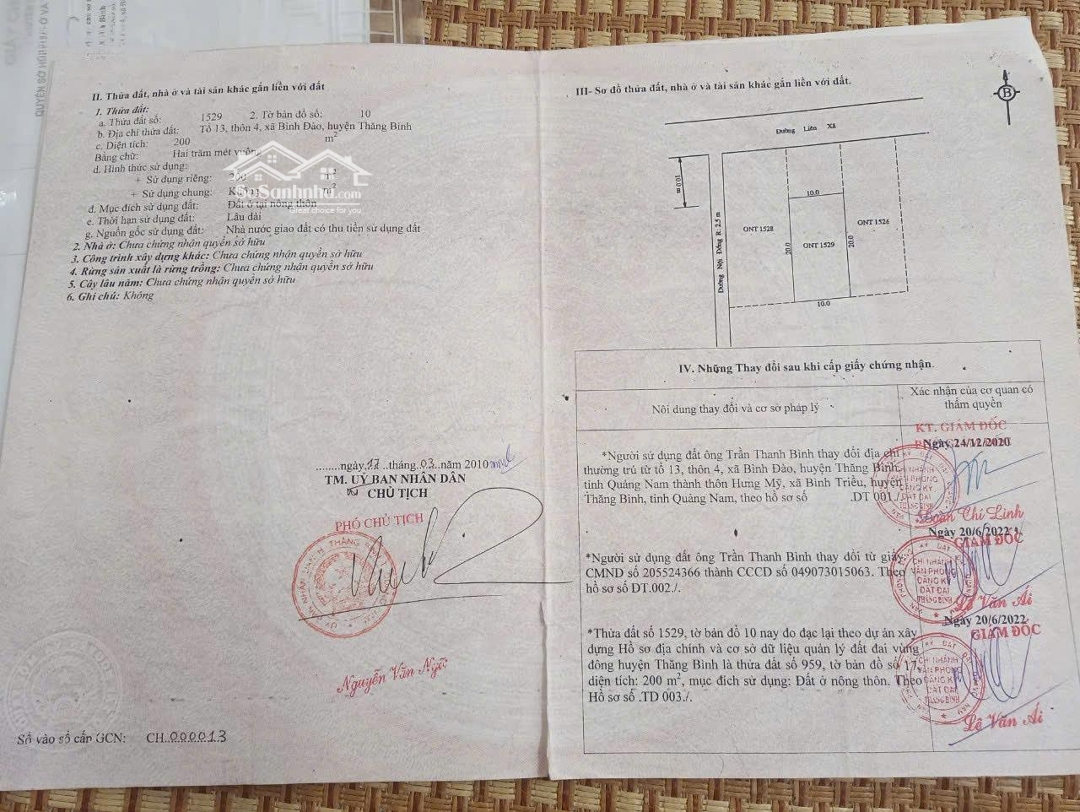 II. Thửa đất, nhà ở và tài sản khác gắn liền với đất
1. Thửa đất:
a. Thửa đất số: 1529 2. Tờ bản đồ số: 10
b. Địa chỉ thửa đất: Tổ 13, thôn 4, xã Bình Đào, huyện Thăng Bình
c. Diện tích: 200 m²
Bằng chữ: Hai trăm mét vuông
d. Hình thức sử dụng:
+ Sử dụng riêng: m²
+ Sử dụng chung: m²
SoSanhnha.com
Great choice for you
đ. Mục đích sử dụng đất: Đất ở tại nông thôn
e. Thời hạn sử dụng đất: Lâu dài
g. Nguồn gốc sử dụng đất: Nhà nước giao đất có thu tiền sử dụng đất
2. Nhà ở: Chưa chứng nhận quyền sở hữu
3. Công trình xây dựng khác: Chưa chứng nhận quyền sở hữu
4. Rừng sản xuất là rừng trồng: Chưa chứng nhận quyền sở hữu
5. Cây lâu năm: Chưa chứng nhận quyền sở hữu
6. Ghi chú: Không
........ngày 17..tháng.03..năm 2010
TM. UỶ BAN NHÂN DÂN
CHỦ TỊCH
PHÓ CHỦ TỊCH
Nguyễn Văn Ngữ
Số vào sổ cấp GCN: CH.000013
III- Sơ đồ thửa đất, nhà ở và tài sản khác gắn liền với đất.
B
Đường Liên Xã
10.0 m
Đường Nội Đồng R: 2.5 m
10.0
ONT 1528
20.0
ONT 1529
20.0
ONT 1526
10.0
IV. Những Thay đổi sau khi cấp giấy chứng nhận.
Nội dung thay đổi và cơ sở pháp lý
Xác nhận của cơ quan có
thẩm quyền
*Người sử dụng đất ông Trần Thanh Bình thay đổi địa chỉ
thường trú từ tổ 13, thôn 4, xã Bình Đào, huyện Thăng Bình,
tỉnh Quảng Nam thành thôn Hưng Mỹ, xã Bình Triều, huyện
Thăng Bình, tỉnh Quảng Nam, theo hồ sơ số .DT 001./.
KT. GIÁM ĐỐC
Ngày 24/12/2020
CHI NHÁNH
VĂN PHÒNG
ĐĂNG KÝ
ĐẤT ĐAI
THĂNG BÌNH
Đoàn Chí Linh
*Người sử dụng đất ông Trần Thanh Bình thay đổi từ giấy
CMND số 205524366 thành CCCD số 049073015063. Theo
hồ sơ số DT.002./.
Ngày 20/6/2022
GIÁM ĐỐC
CHI NHÁNH
VĂN PHÒNG
ĐĂNG KÝ
ĐẤT ĐAI
THĂNG BÌNH
Lê Văn Ái
*Thửa đất số 1529, tờ bản đồ 10 nay đo đạc lại theo dự án xây
dựng Hồ sơ địa chính và cơ sở dữ liệu quản lý đất đai vùng
đông huyện Thăng Bình là thửa đất số 959, tờ bản đồ số 17
diện tích: 200 m², mục đích sử dụng: Đất ở nông thôn. Theo
Hồ sơ số .TD 003./.
Ngày 20/6/2022
GIÁM ĐỐC
CHI NHÁNH
VĂN PHÒNG
ĐĂNG KÝ
ĐẤT ĐAI
THĂNG BÌNH
Lê Văn Ái